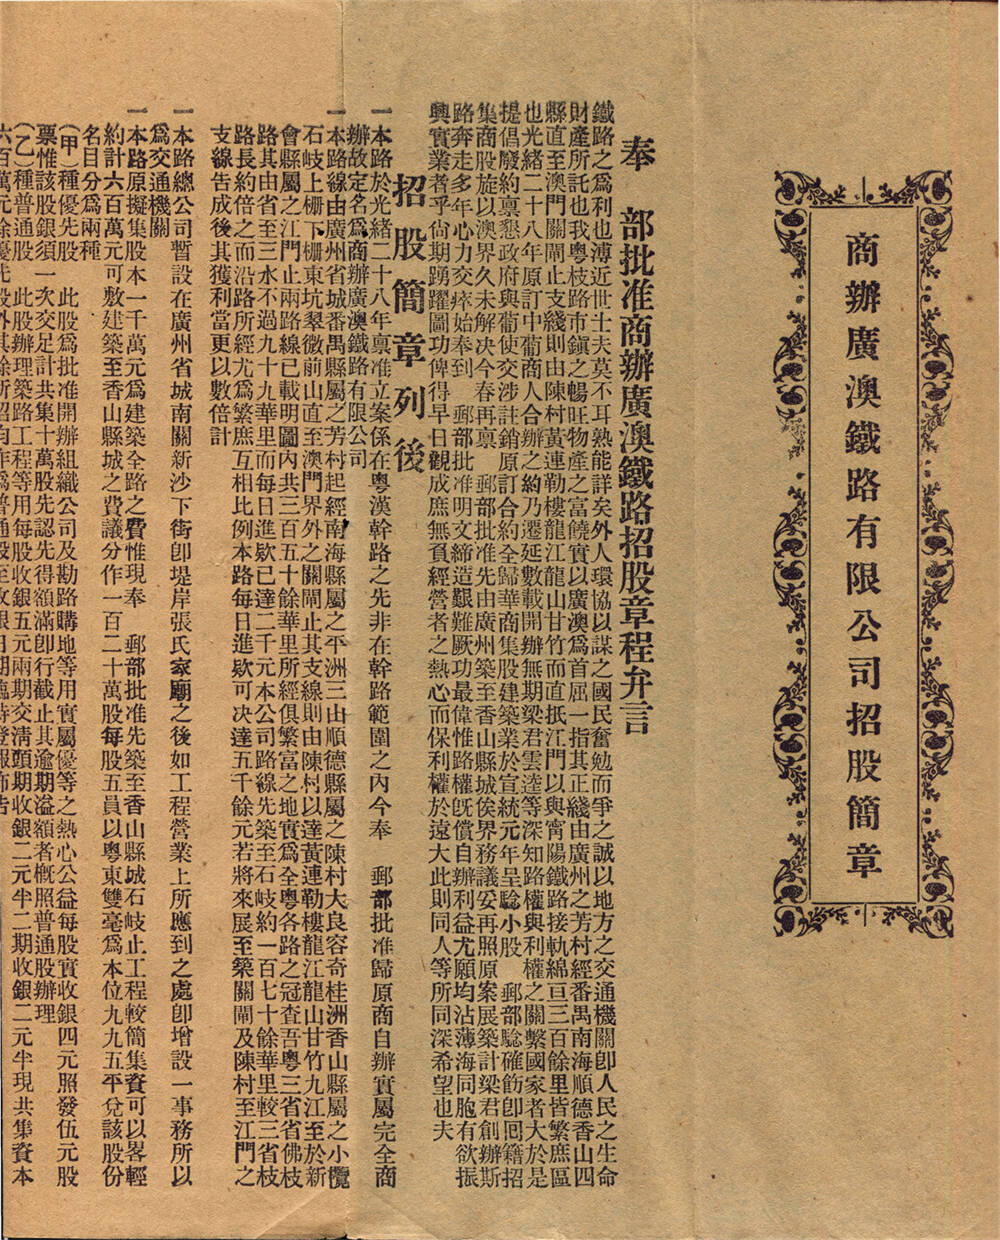 商辦廣澳鐵路有限公司招股簡章
奉　部批准商辦廣澳鐵路招股章程弁言
鐵路之爲利也溥近世士夫莫不耳熟能詳矣外人環協以謀之國民奮勉而爭之誠以地方之交通機關卽人民之生命
財產所託也我粵枝路市鎭之暢旺物產之富饒實以廣澳爲首屈一指其正綫由廣州之芳村經番禺南海順德香山四
縣直至澳門關閘止支綫則由陳村黃連勒樓龍江龍山甘竹而直抵江門以與甯陽鐵路接軌綿亘三百餘里皆繁庶區
也光緒二十八年原訂中葡商人合辦之約乃遷延數載開辦無期梁君雲逵等深知路權與利權之關繫國家者大於是
提倡廢約稟懇政府與葡使交涉註銷原訂合約全歸華商集股建築業於宣統元年呈騐小股　郵部騐確飭卽回籍招
集商股旋以澳界久未解決今春再稟　郵部批准先由廣州築至香山縣城俟界務議妥再照原案展築計梁君創辦斯
路奔走多年心力交瘁始奉到　郵部批准明文締造艱難厥功最偉惟路權旣償自辦利益尤願均沾薄海同胞有欲振
興實業者乎尙期踴躍圖功俾得早日觀成庶無負經營者之熱心而保利權於遠大此則同人等所同深希望也夫
招股簡章列後
一本路於光緒二十八年稟准立案係在粵漢幹路之先非在幹路範圍之內今奉　郵部批准歸原商自辦實屬完全商
辦故定名爲商辦廣澳鐵路有限公司
一本路線由廣州省城番禺縣屬之芳村起經南海縣屬之平洲三山順德縣屬之陳村大良容奇桂洲香山縣屬之小欖
石岐上柵下柵東坑翠微前山直至澳門界外之關閘止其支線則由陳村以達黃連勒樓龍江龍山甘竹九江至於新
會縣屬之江門止兩路線已載明圖內共三百五十餘華里所經俱繁富之地實爲全粵各路之冠查吾粵三省省佛枝
路其由省至三水不過九十九華里而每日進欵已達二千元本公司路線先築至石岐約一百七十餘華里較三省枝
路長約倍之而沿路所經尤爲繁庶互相比例本路每日進欵可決達五千餘元若將來展至築關閘及陳村至江門之
支線告成後其獲利當更以數倍計
一本路總公司暫設在廣州省城南關新沙下街卽堤岸張氏家廟之後如工程營業上所應到之處卽增設一事務所以
爲交通機關
一本路原擬集股本一千萬元爲建築全路之費惟現奉　郵部批准先築至香山縣城石岐止工程較簡集資可以畧輕
約計六百萬元可敷建築至香山縣城之費議分作一百二十萬股每股五員以粵東雙毫爲本位九九五平兌該股份
名目分爲兩種
（甲）種優先股　此股爲批准開辦組織公司及勘路購地等用實屬優等之熱心公益每股實收銀四元照發伍元股
票惟該股銀須一次交足計共集十萬股先認先得額滿卽行截止其逾期溢額者概照普通股辦理
（乙）種普通股　此股辦理築路工程等用每股收銀五元兩期交淸頭期收銀二元半二期收銀二元半現共集資本
六百萬元除優先股外其餘所招均作爲普通股至收銀日期臨時登報佈告